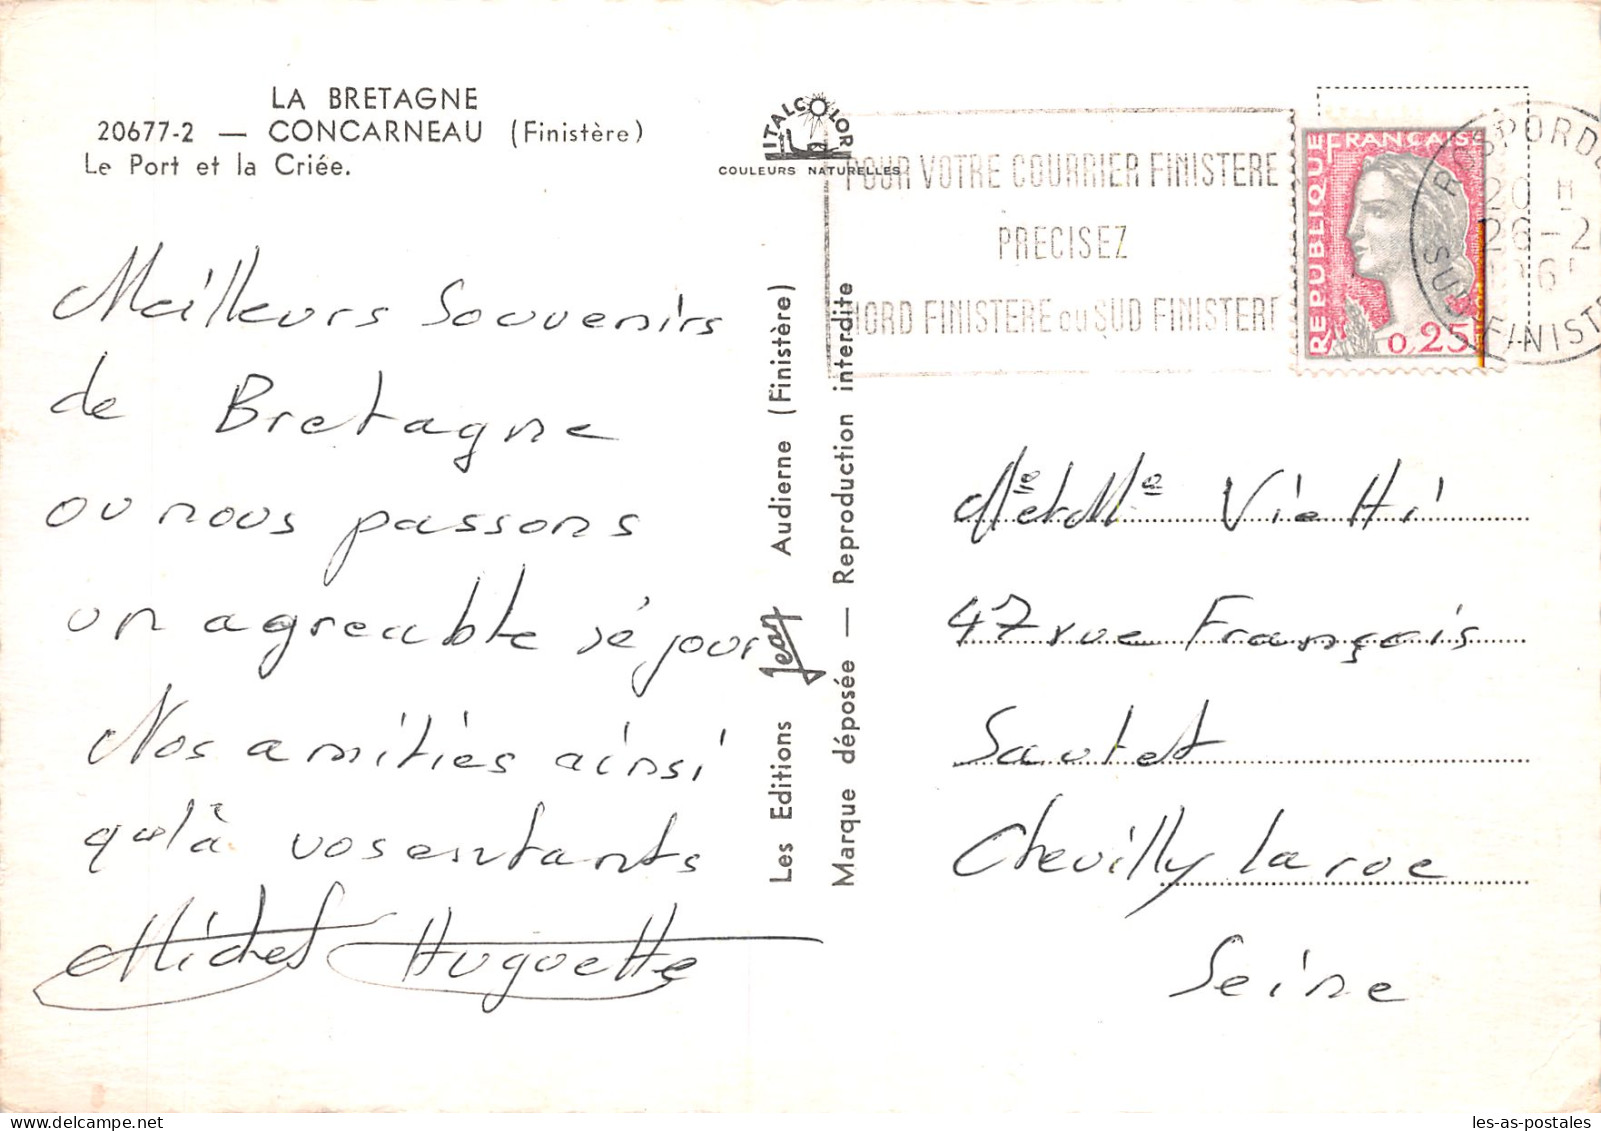 LA BRETAGNE
20677-2 — CONCARNEAU (Finistère)
Le Port et la Criée.
Meilleurs Souvenirs
de Bretagne
ou nous passons
un agreable séjour
Nos amitiés ainsi
qu'à vos enfants
Michel Huguette
ITALCOLOR
COULEURS NATURELLES
Les Editions Jean Audierne (Finistère)
Marque déposée — Reproduction interdite
POUR VOTRE COURRIER FINISTERE
PRECISEZ
NORD FINISTERE ou SUD FINISTERE
REPUBLIQUE FRANÇAISE
0,25
ROSPORDEN
20 H
26-2
SUD FINISTE
Mr et Mme Vietti
47 rue François
Sautet
Chevilly la rue
Seine
les-as-postales